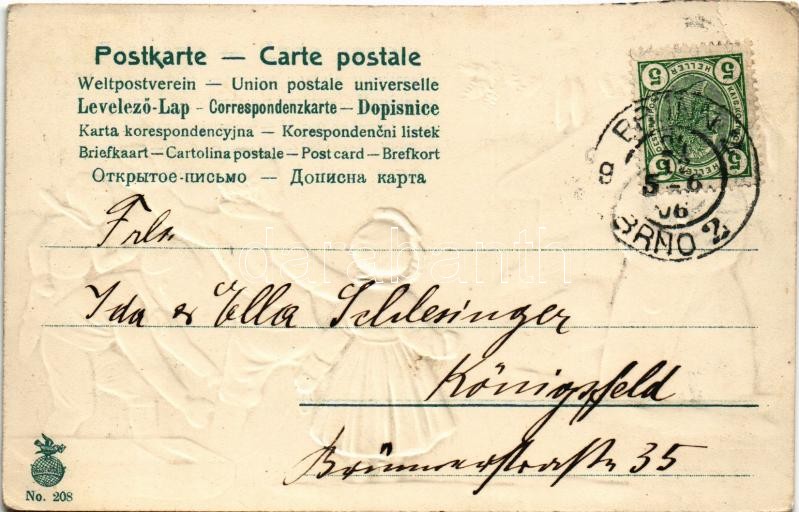 Postkarte — Carte postale
Weltpostverein — Union postale universelle
Levelező-Lap - Correspondenzkarte — Dopisnice
Karta korespondencyjna — Korespondenčni listek
Briefkaart — Cartolina postale — Post card — Brefkort
Открытое-письмо — Дописна карта
5 HELLER 5
BRNO 2
06
Frln
Ida & Ella Schlesinger
Königsfeld
Brünnerstraße 35
darabanth
No. 208